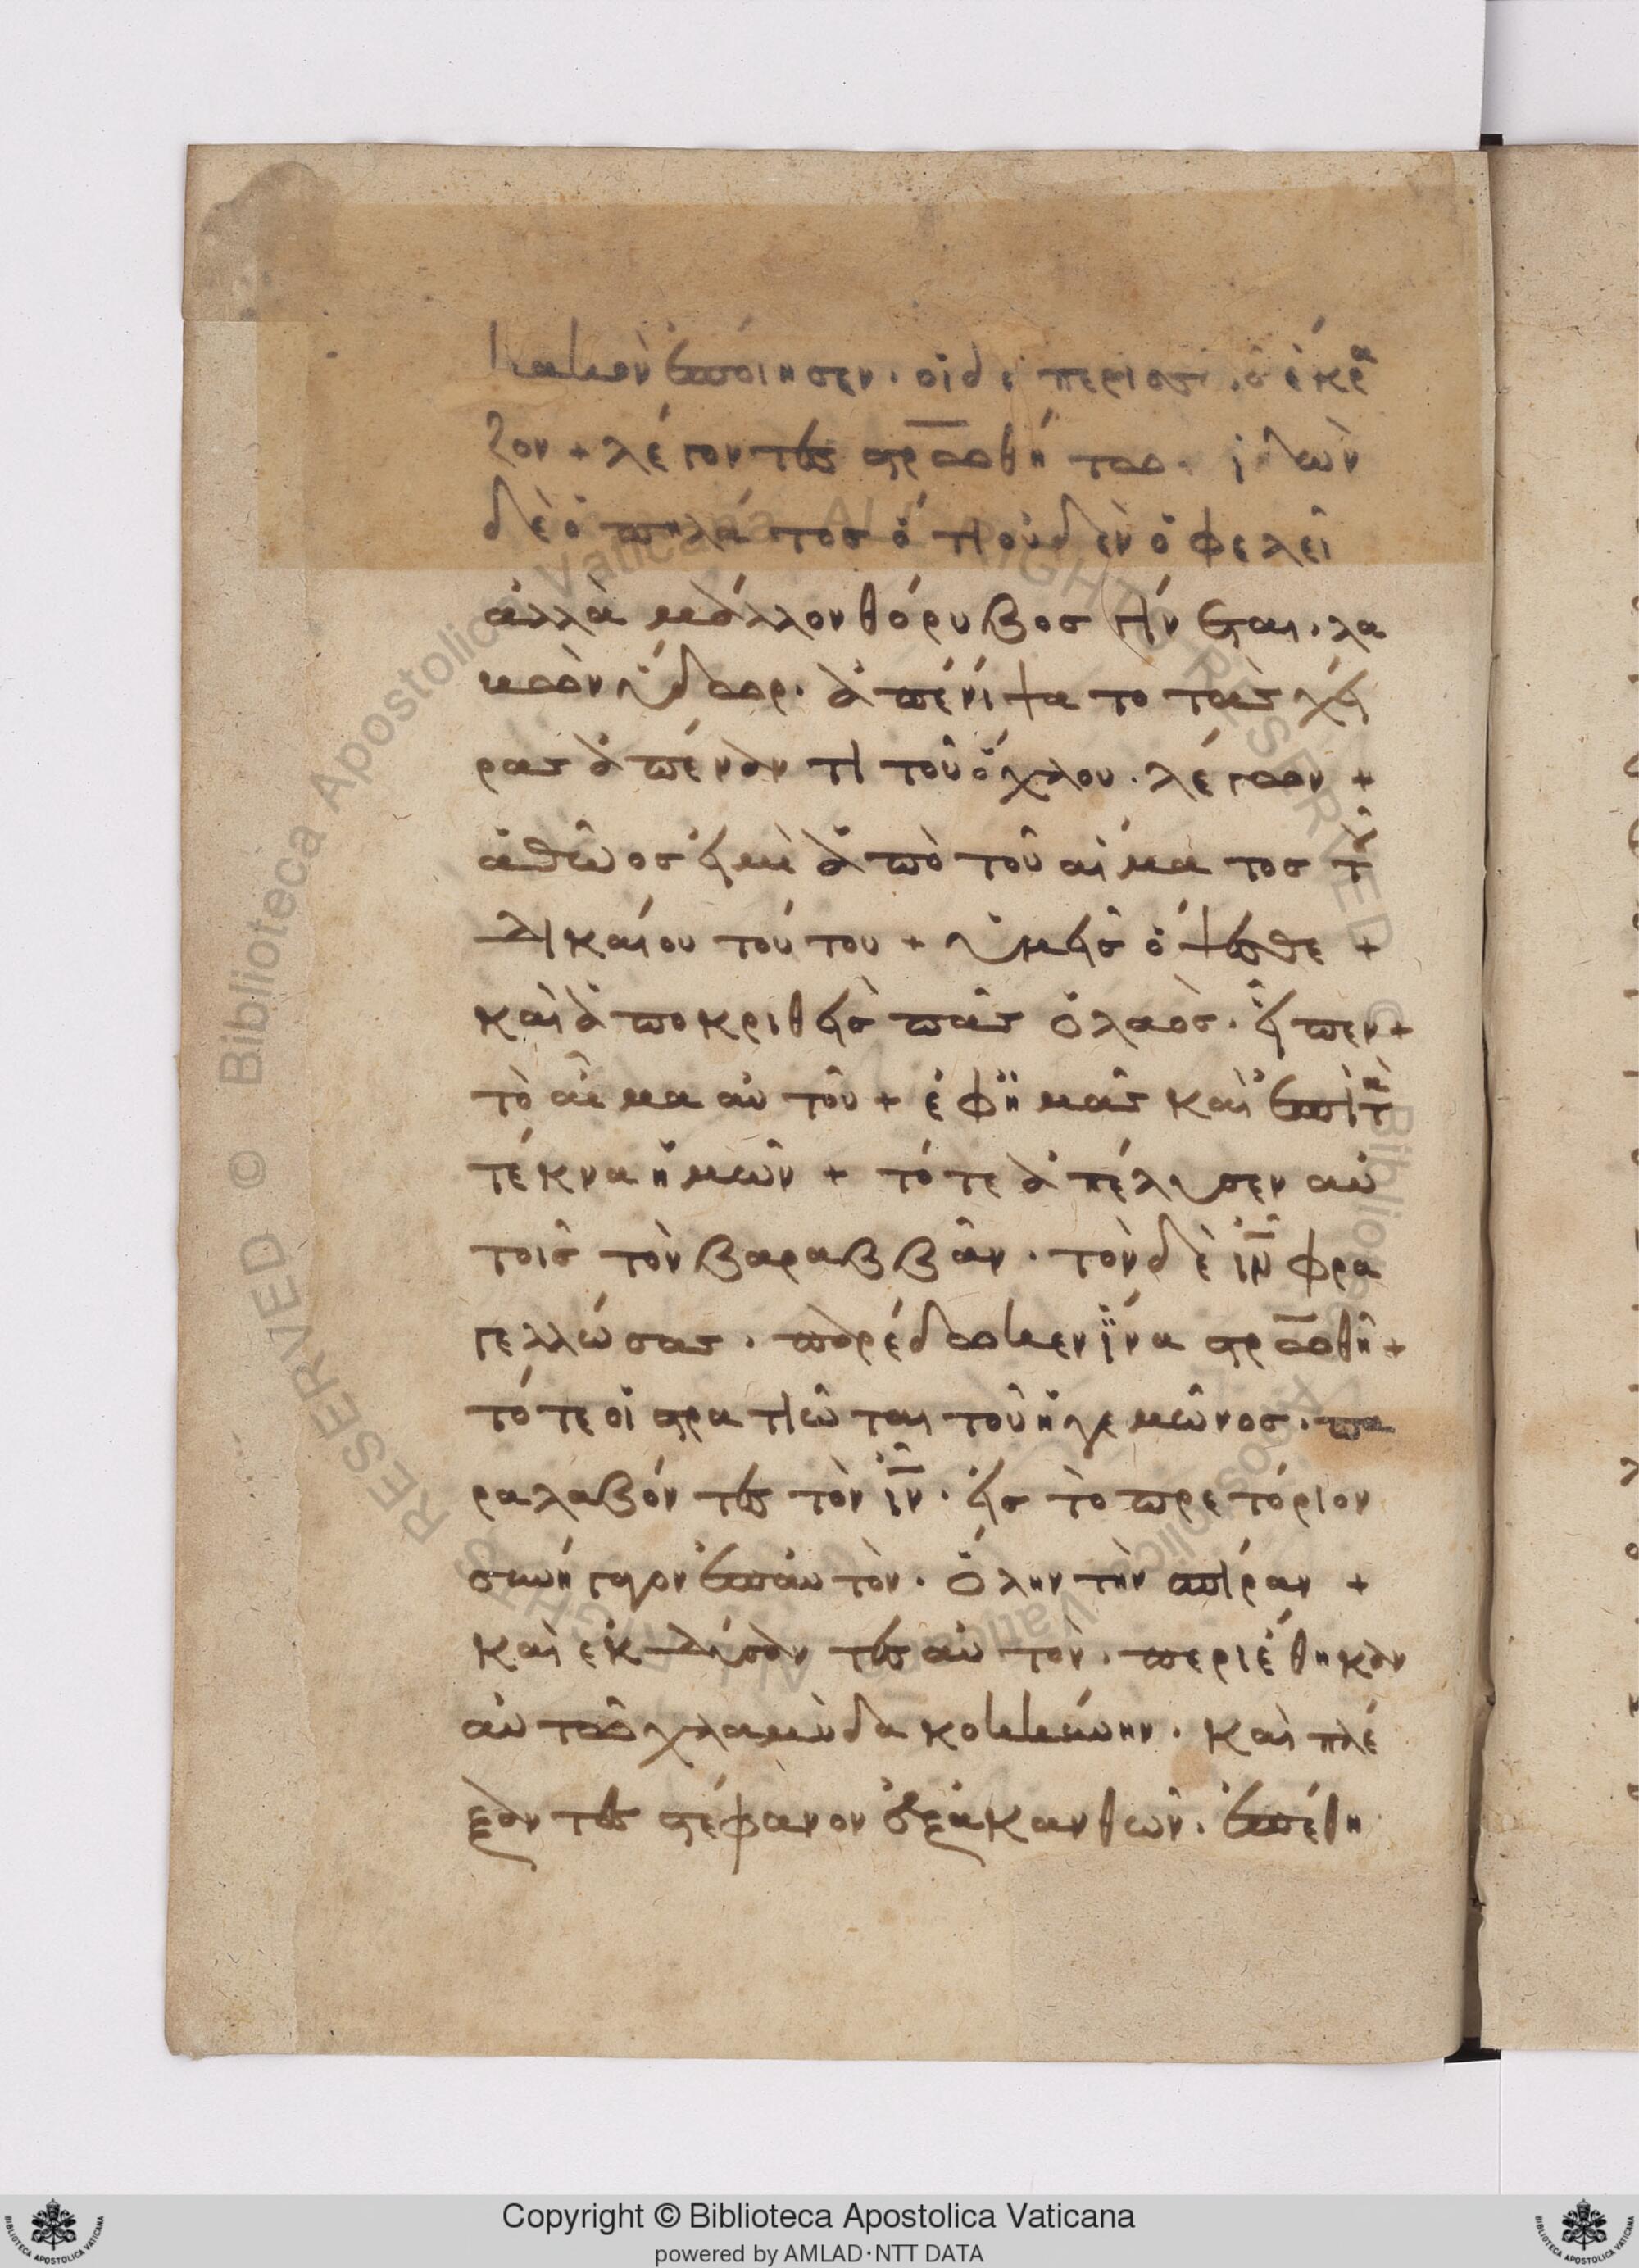 κακὸν ἐποίησεν· οἱ δὲ περισσῶς ἐκρα
ζον + λέγοντες στ̅ρωθήτω· ἰδὼν
δὲ ὁ πηλάτος ὅτι οὐδὲν ὀφελεῖ
ἀλλὰ μάλλον θόρυβος γίνεται· λα
βὼν ὕδωρ· ἀπενίψατο τὰς χεῖ
ρας ἀπέναντι τοῦ ὄχλου· λέγων +
ἀθῶος εἰμὶ ἀπὸ τοῦ αἵματος τοῦ
δικαίου τούτου + ὑμεῖς ὄψεσθε +
καὶ ἀποκριθεὶς πᾶς ὁ λαὸς· εἶπεν +
τὸ αἷμα αὐτοῦ + ἐφ ἡμᾶς καὶ ἐπὶ τὰ
τέκνα ἡμῶν + τότε ἀπέλυσεν αὐ
τοῖς τὸν βαραββᾶν· τὸν δὲ ι̅ν̅ φρα
γελλώσας· παρέδωκεν ἵνα στρ̅ωθῆ +
τότε οἱ στρατιῶται τοῦ ἡγεμῶνος· πα
ραλαβόντες τὸν ι̅ν̅· εἰς τὸ πρετόριον
συνήγαγον ἐπ αὐτὸν· ὅλην τὴν σπίραν +
καὶ ἐκδύσαντες αὐτὸν· περιέθηκαν
αὐτῶ χλαμύδα κοκκίνην· καὶ πλέ
ξαντες στέφανον ἐξ ἀκανθῶν· ἐπέθη
Copyright © Biblioteca Apostolica Vaticana
powered by AMLAD·NTT DATA